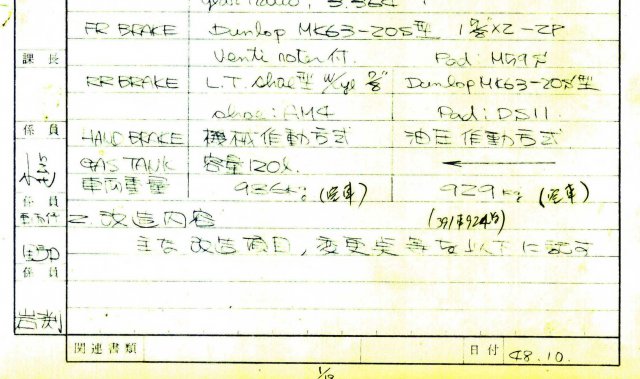 gear ratio; 3.364
FR BRAKE Dunlop MK63-20S型 1 5/8"×2-2P
Venti rotor付. Pad: M59タ
課長
RR BRAKE L.T. shoe型 W/cyl 7/8" Dunlop MK63-20S型
shoe: AM4 Pad: DS11.
係員 HAND BRAKE 機械作動方式 油圧作動方式
GAS TANK 容量120ℓ. ←
車両重量 936kg (空車) 929kg (空車)
係員
2. 改造内容
主な改造項目,変更点等を以下に記す
係員
岩渕
関連書類 日付 48.10.